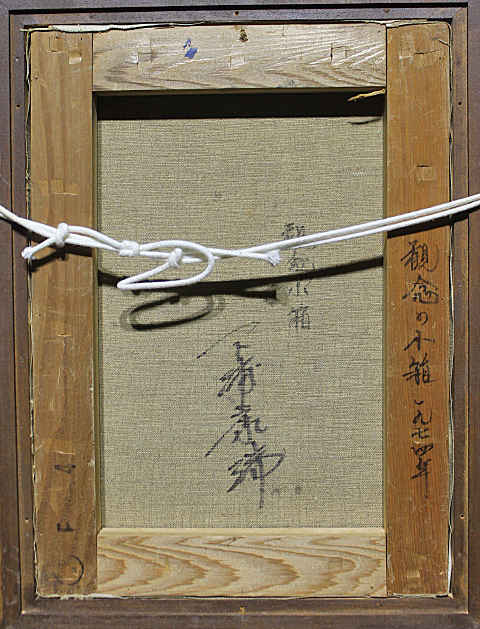 観念の小箱 一九七四年
観念の小箱
F 4